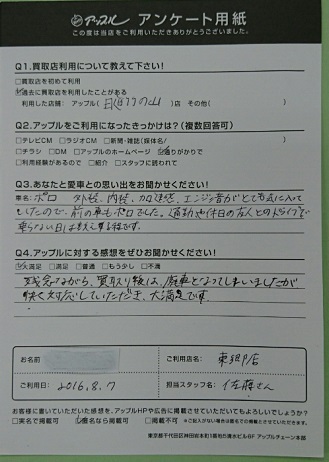 アップル アンケート用紙
この度は当店をご利用いただきありがとうございました。
Q1.買取店利用について教えて下さい!
□買取店を初めて利用
☑過去に買取店を利用したことがある
利用した店舗: アップル( )店 その他( )
Q2.アップルをご利用になったきっかけは?(複数回答可)
□テレビCM □ラジオCM □新聞・雑誌(媒体名: )
□チラシ □DM □アップルのホームページ ☑通りがかりで
□利用経験があるので □紹介 □スタッフに誘われて
Q3.あなたと愛車との思い出をお聞かせください!
車名:ポロ 外装、内装、加速感、エンジン音がとても気に入って
いたので、前の車もポロでした。通勤や休日の友人とのドライブで
乗らない日は数え
Q4.アップルに対する感想をぜひお聞かせください!
☑大満足 □満足 □普通 □もう少し □不満
残念ながら、買取り後は、廃車となってしまいましたが
快く対応していただき、大満足です。
お名前
ご利用店名: 東組戸店
ご利用日: 2016.8.7
担当スタッフ名: 佐藤さん
お客様に書いていただいた感想を、アップルHPや広告に掲載させていただいてもよろしいでしょうか?
□実名で掲載可 ☑匿名なら掲載可 ※ご記入がない場合は匿名での掲載とさせていただきます。
東京都千代田区神田岩本町1番地岩本町 アップルチェーン本部